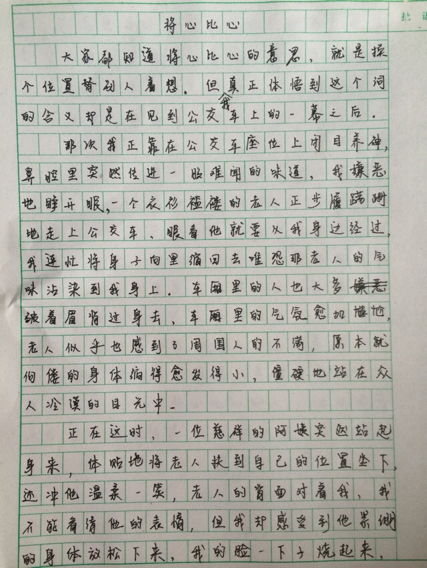 将心比心
大家都知道将心比心的意思，就是换
个位置替别人着想。但我真正体悟到这个词
的含义却是在见到公交车上的一幕之后。
那次我正靠在公交车座位上闭目养神，
鼻腔里突然传进一股难闻的味道，我嫌恶
地睁开眼，一个衣衫褴褛的老人正步履蹒跚
地走上公交车、眼看他就要从我身边经过，
我连忙将身子向里缩回去唯恐那老人的
味沾染到我身上。车厢里的人也大多
皱着眉背过身去，车厢里的气氛愈加尴尬，
老人似乎也感到了周围人的不满，原本就
佝偻的身体缩得愈发得小，僵硬地站在众
人冷漠的目光中。
正在这时，一位慈祥的阿姨突然站起
身来，体贴地将老人扶到自己的位置坐下，
还冲他温柔一笑，老人的背面对着我，我
不能看清他的表情，但我却感受到他紧绷
的身体放松下来，我的脸一下子烧起来，